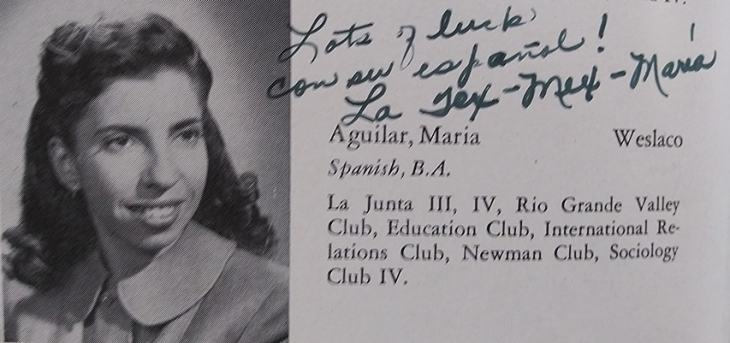 Lots of luck
con su español!
La Tex-Mex-Maria
Aguilar, Maria Weslaco
Spanish, B.A.
La Junta III, IV, Rio Grande Valley
Club, Education Club, International Re-
lations Club, Newman Club, Sociology
Club IV.